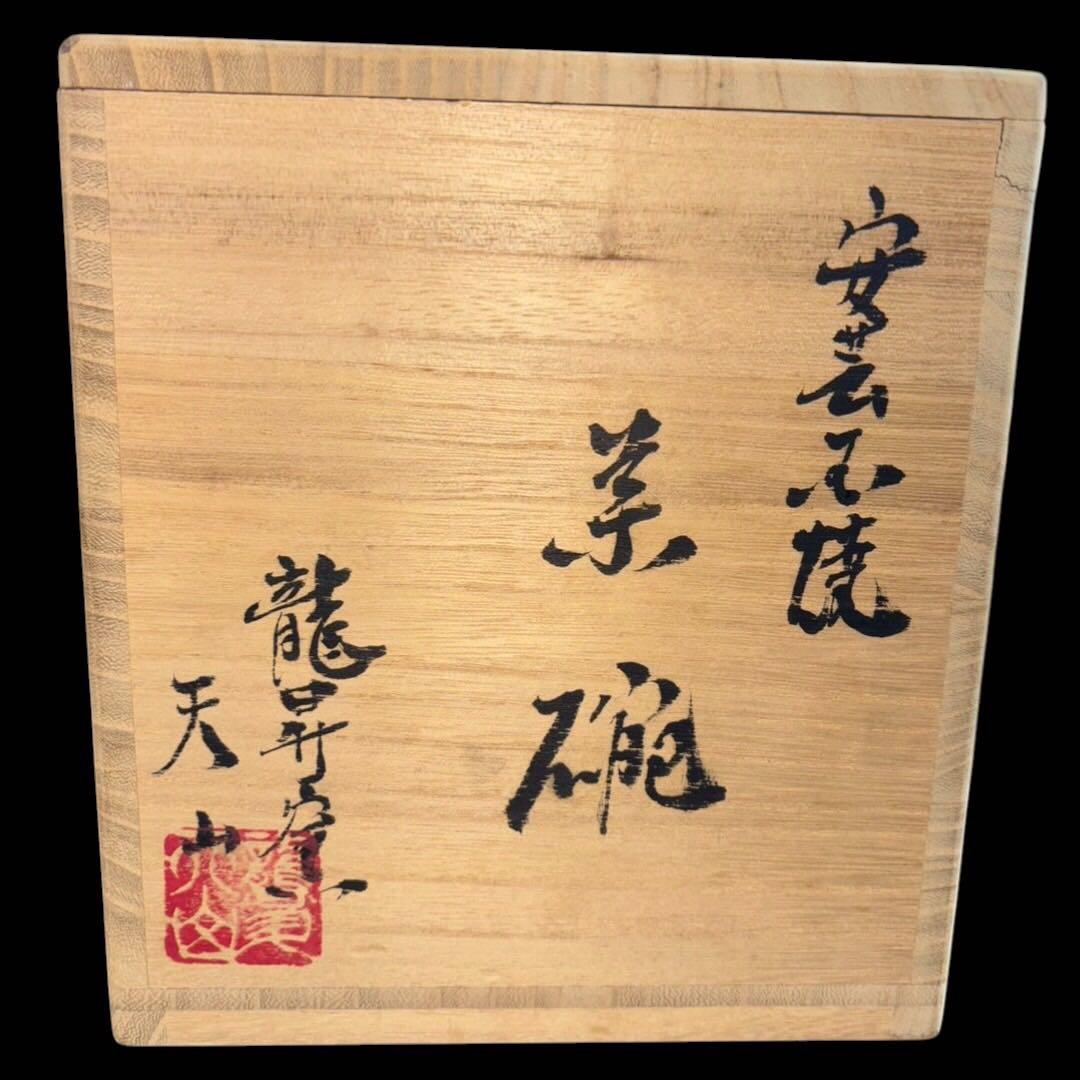 安芸不焼
茶碗
龍昇窯
天山